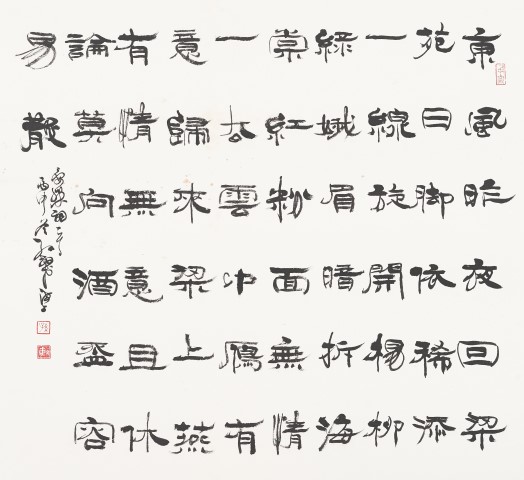 東風昨夜回梁
苑日脚依稀添
一線旋開楊柳
綠娥眉暗拆海
棠紅粉面無情
一去雲中鴈有
意歸來梁上燕
有情無意且休
論莫向酒盃容
易散
晏殊詞一首